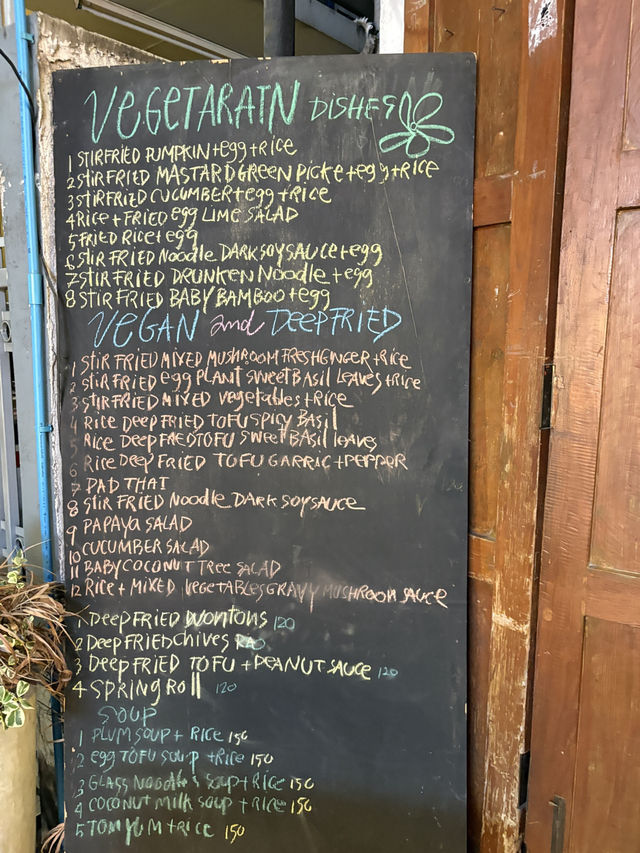 VEGETARAIN DISHES
1 STIRFRIED PUMPKIN+egg+RICE
2 STIR FRIED MASTARD GREEN PICKE+egg+RICE
3 STIRFRIED CUCUMBER+egg+RICE
4 RICE+FRIED egg LIME SALAD
5 FRIED RICE+egg
6 STIR FRIED NOODLE DARK SOYSAUCE+egg
7 STIR FRIED DRUNKEN NOODLE+egg
8 STIR FRIED BABY BAMBOO+egg
VEGAN and DEEPFRIED
1 STIR FRIED MIXED MUSHROOM FRESHGINGER+RICE
2 STIR FRIED egg PLANT SWEET BASIL LEAVES+RICE
3 STIR FRIED MIXED vegetables+RICE
4 RICE DEEP FRIED TOFU SPICY BASIL
5 RICE DEEP FRIED TOFU SWEET BASIL leaves
6 RICE DEEP FRIED TOFU GARRIC+PEPPER
7 PAD THAI
8 STIR FRIED NOODLE DARK SOYSAUCE
9 PAPAYA SALAD
10 CUCUMBER SALAD
11 BABY COCONUT TREE SALAD
12 RICE+MIXED VEGETABLES GRAVY MUSHROOM SAUCE
1 DEEP FRIED WONTONS 120
2 DEEP FRIED CHIVES
3 DEEP FRIED TOFU+PEANUT SAUCE 120
4 SPRING ROLL 120
SOUP
1 PLUM SOUP+RICE 150
2 egg TOFU SOUP+RICE 150
3 GLASS NOODLES SOUP+RICE 150
4 COCONUT MILK SOUP+RICE 150
5 TOM YUM+RICE 150